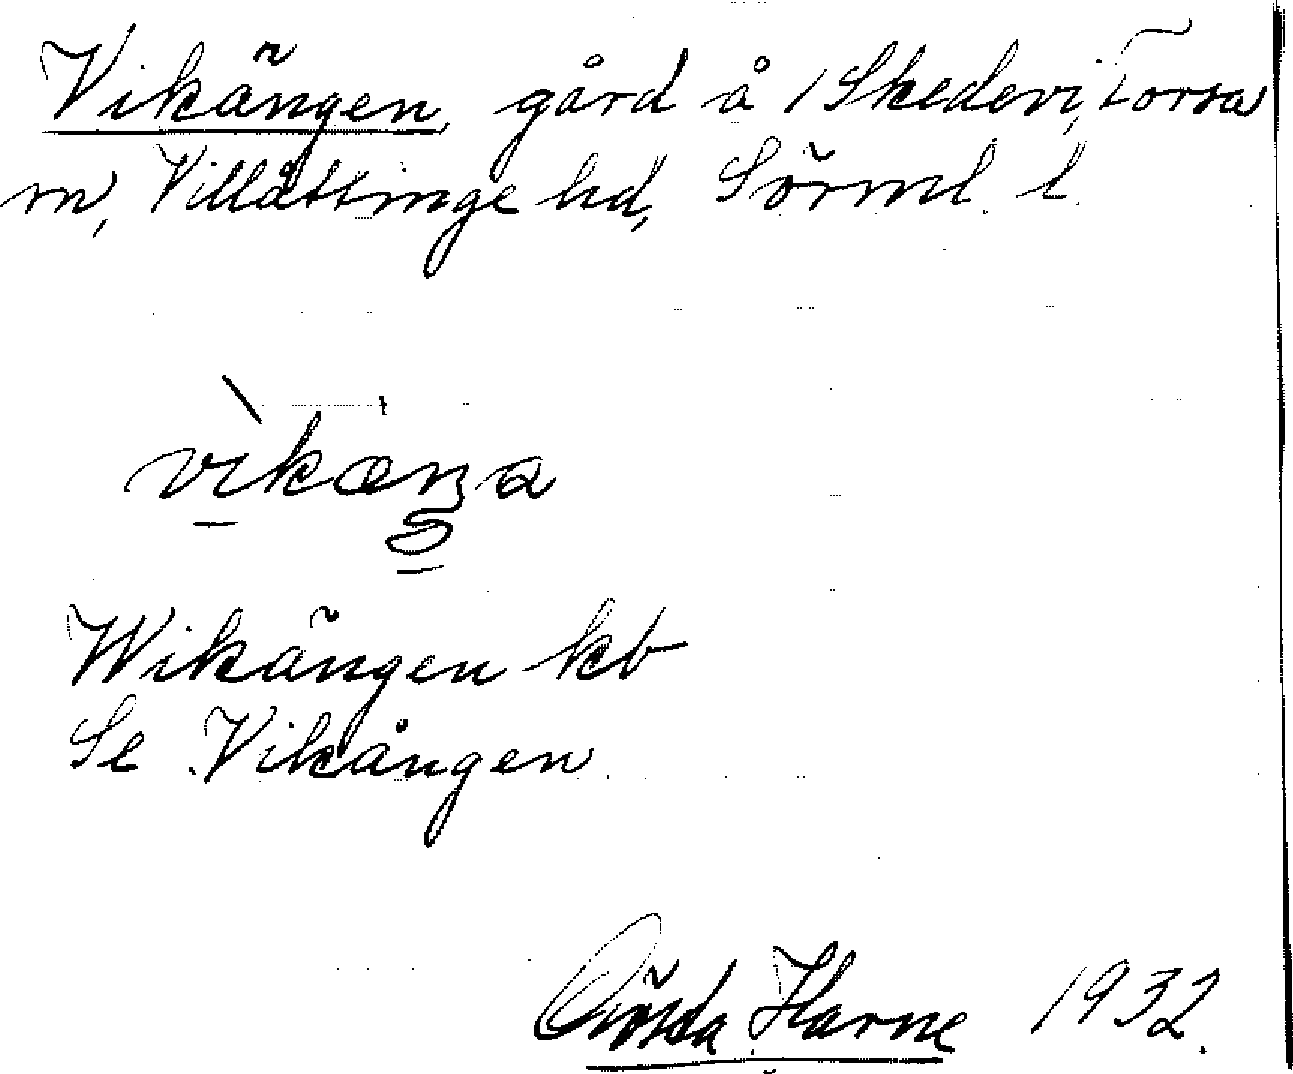 Vikängen, gård å 1 Skedevi, Torsa
sn, Villåttinge hd, Sörml. l.
vikæŋa
Wikängen kb
Se Vikången.
Gösta Harne 1932.